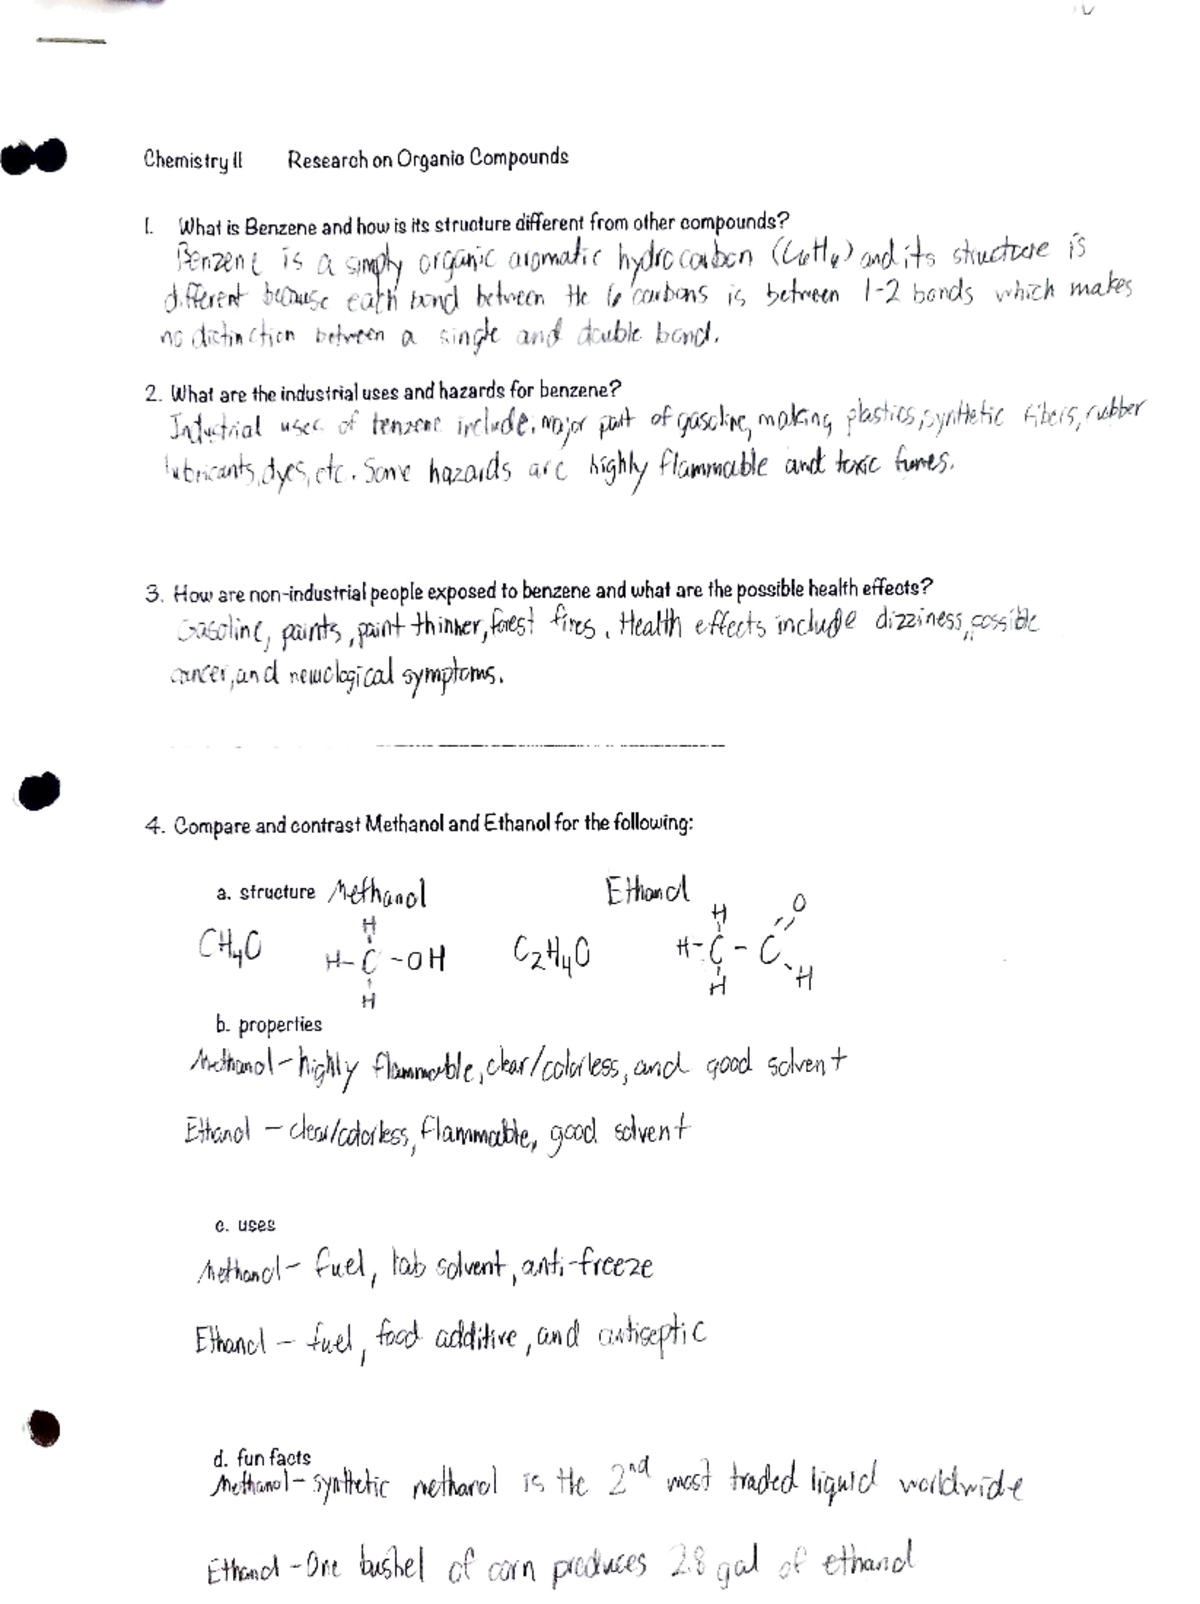 Chemistry II Research on Organic Compounds
1. What is Benzene and how is its structure different from other compounds?
Benzene is a simply organic aromatic hydrocarbon (C6H6) and its structure is
different because each bond between the 6 carbons is between 1-2 bonds which makes
no distinction between a single and double bond.
2. What are the industrial uses and hazards for benzene?
Industrial uses of benzene include, major part of gasoline, making plastics, synthetic fibers, rubber
lubricants, dyes, etc. Some hazards are highly flammable and toxic fumes.
3. How are non-industrial people exposed to benzene and what are the possible health effects?
Gasoline, paints, paint thinner, forest fires. Health effects include dizziness, possible
cancer, and neurological symptoms.
4. Compare and contrast Methanol and Ethanol for the following:
a. structure Methanol Ethanol
H H O
CH4O H-C-OH C2H4O H-C-C
H H H
b. properties
Methanol - highly flammable, clear/colorless, and good solvent
Ethanol - clear/colorless, flammable, good solvent
c. uses
Methanol - fuel, lab solvent, anti-freeze
Ethanol - fuel, food additive, and antiseptic
d. fun facts
Methanol - synthetic methanol is the 2nd most traded liquid worldwide
Ethanol - One bushel of corn produces 2.8 gal of ethanol